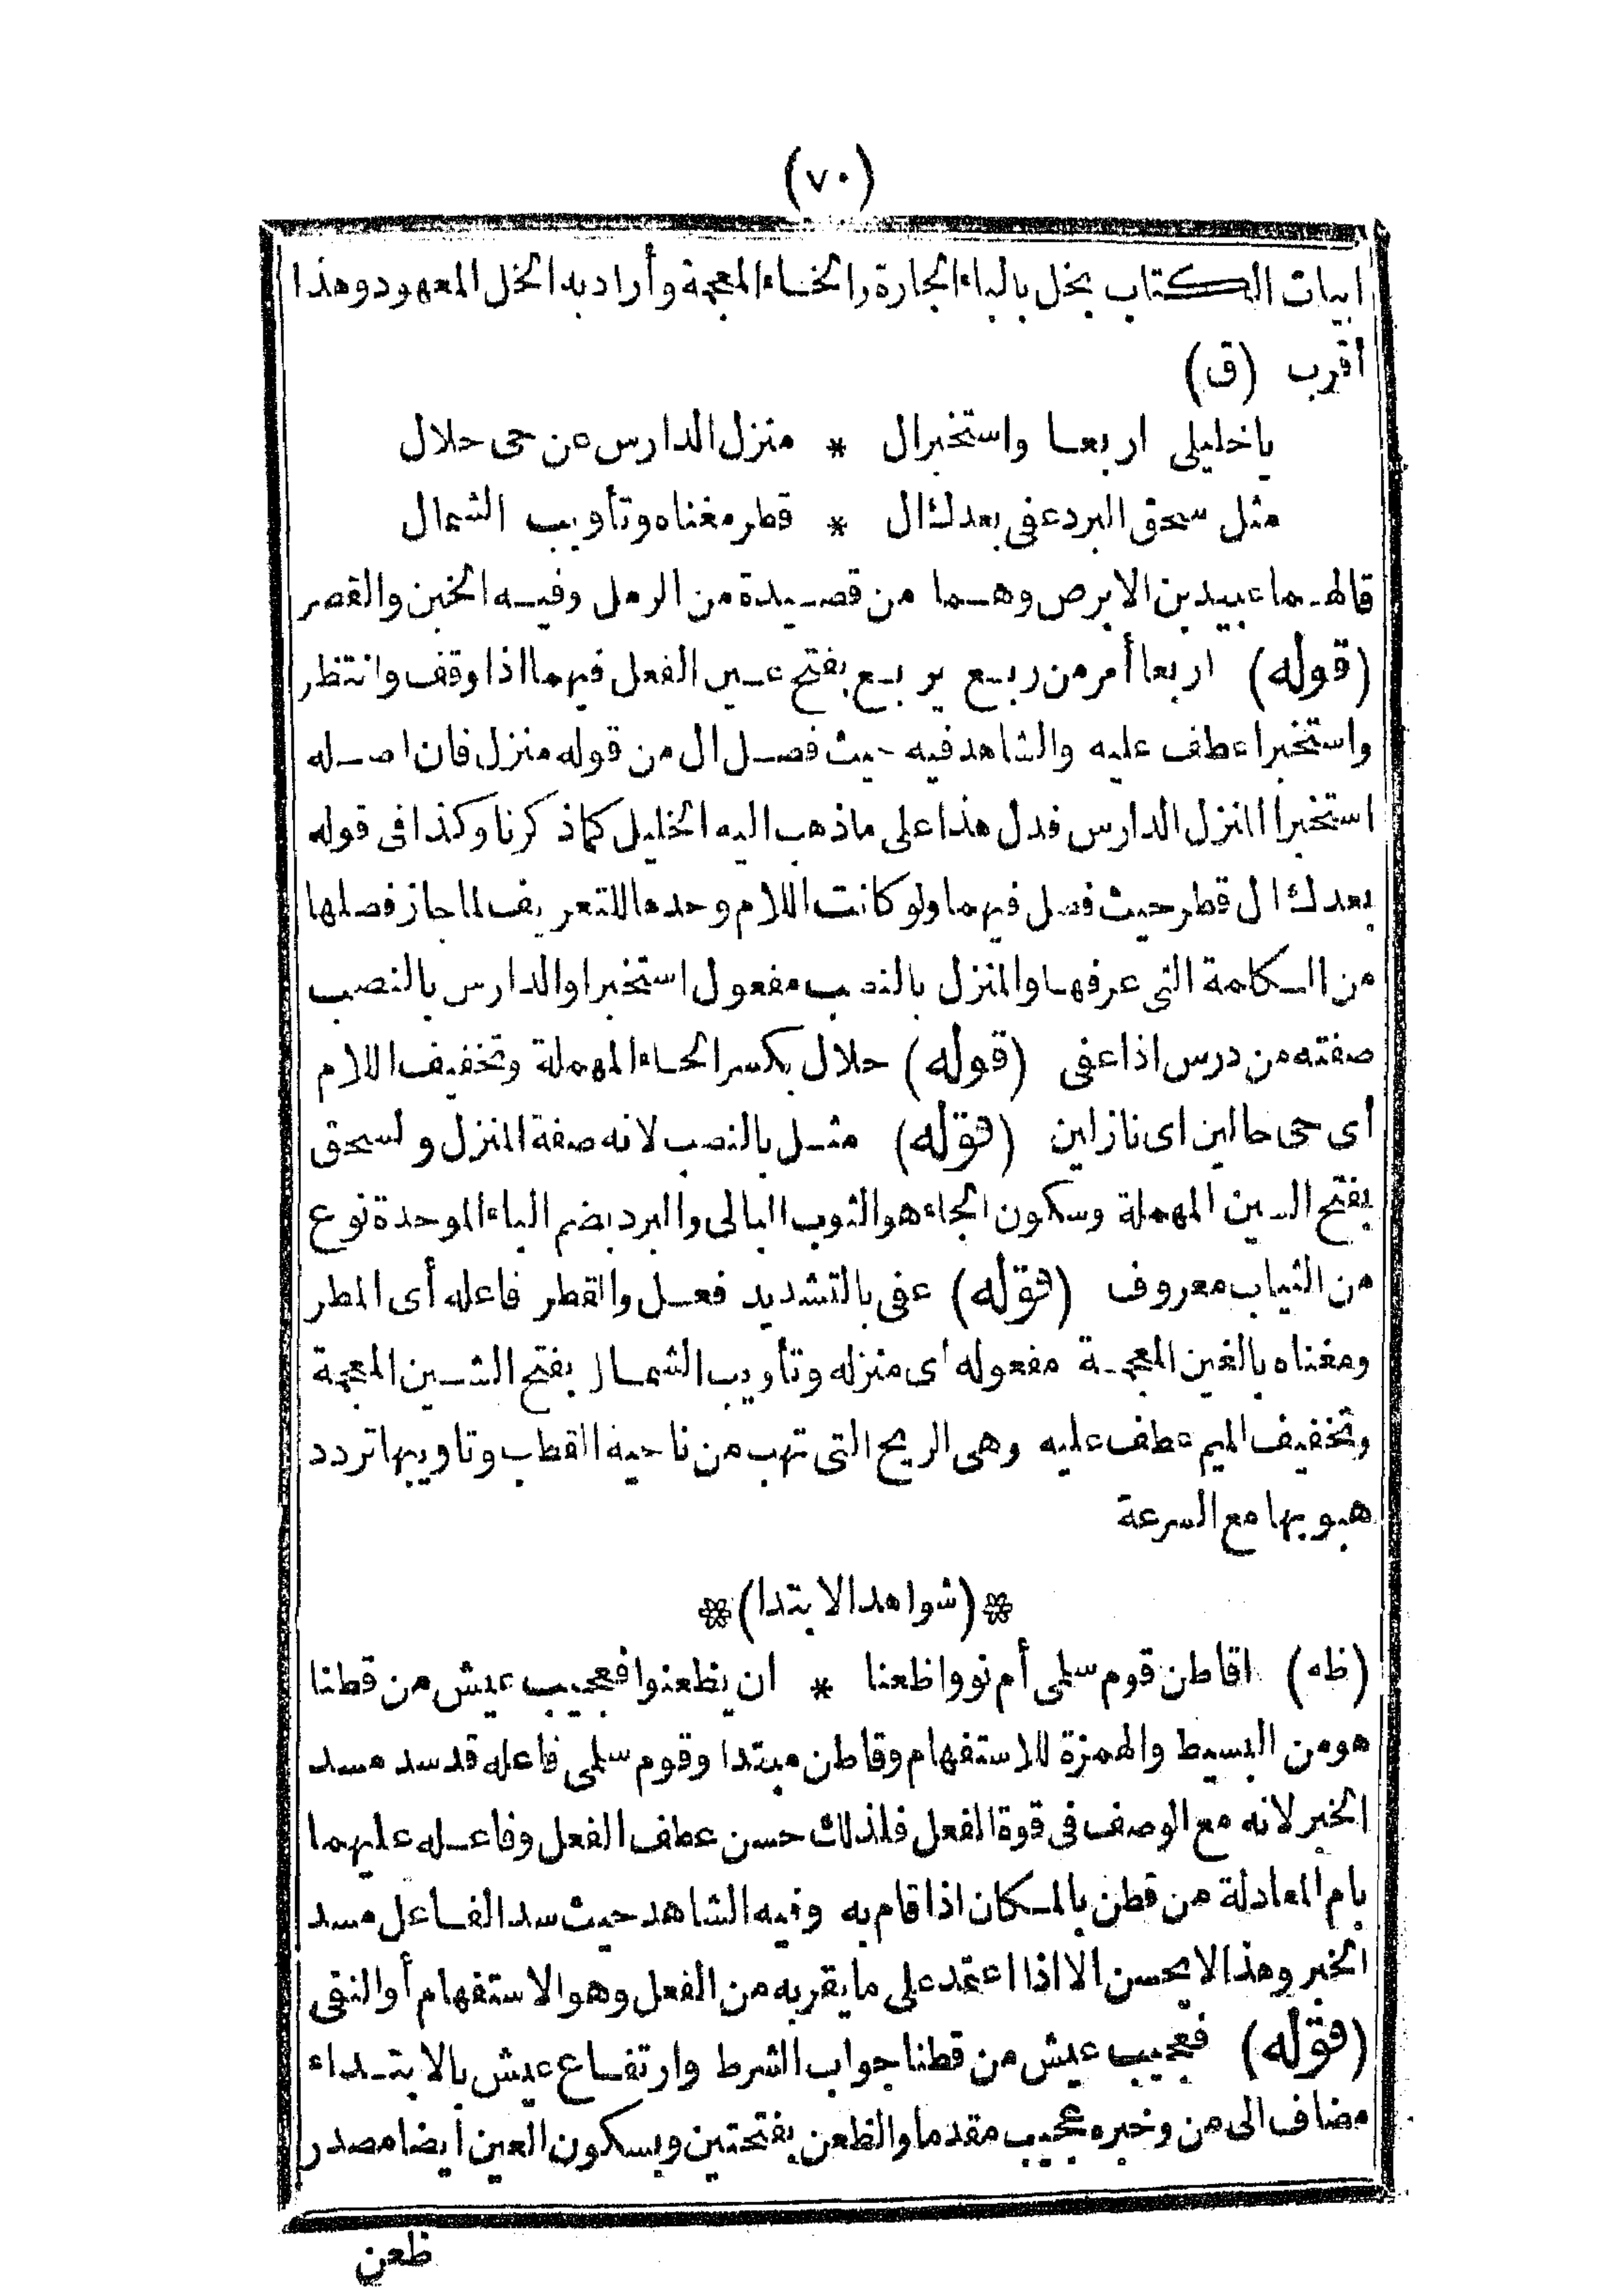 (٧٠)
ابيات الكتاب بخل بالباء الجارة والخاء المعجمة وأراد به الخل المعهود وهذا
أقرب (ق)
ياخليلى اربعا واستخبرال * منزل الدارس عن حى حلال
مثل سحق البرد عفى بعدك ال * قطر مغناه وتأويب الشمال
قالهما عبيد بن الابرص وهما من قصيدة من الرمل وفيه الخبن والقصر
(قوله) اربعا أمر من ربع يربع بفتح عين الفعل فيهما اذا وقف وانتظر
واستخبرا عطف عليه والشاهد فيه حيث فصل ال من قوله منزل فان اصله
استخبرا المنزل الدارس فدل هذا على ماذهب اليه الخليل كماذكرنا وكذا فى قوله
بعدك ال قطر حيث فصل فيهما ولو كانت اللام وحدها للتعريف لما جاز فصلها
من الكلمة التى عرفها والمنزل بالنصب مفعول استخبرا والدارس بالنصب
صفته من درس اذا عفى (قوله) حلال بكسر الحاء المهملة وتخفيف اللام
أى حى حالين اى نازلين (قوله) مثل بالنصب لانه صفة المنزل ولسحق
بفتح السين المهملة وسكون الحاء هو الثوب البالى والبرد بضم الباء الموحدة نوع
من الثياب معروف (قوله) عفى بالتشديد فعل والقطر فاعله أى المطر
ومغناه بالغين المعجمة مفعوله اى منزله وتأويب الشمال بفتح الشين المعجمة
وتخفيف الميم عطف عليه وهى الريح التى تهب من ناحية القطب وتاويبها تردد
هبوبها مع السرعة
(شواهد الابتدا)
(ظه) اقاطن قوم سلمى أم نووا ظعنا * ان يظعنوا فعجيب عيش من قطنا
هو من البسيط والهمزة للاستفهام وقاطن مبتدا وقوم سلمى فاعله قد سد مسد
الخبر لانه مع الوصف فى قوة الفعل فلذلك حسن عطف الفعل وفاعله عليهما
بام المعادلة من قطن بالمكان اذا قام به وفيه الشاهد حيث سد الفاعل مسد
الخبر وهذا لا يحسن الا اذا اعتمد على مايقربه من الفعل وهو الاستفهام أو النفى
(قوله) فعجيب عيش من قطنا جواب الشرط وارتفاع عيش بالابتداء
مضاف الى من وخبره عجيب مقدما والظعن بفتحتين وبسكون العين ايضا مصدر
ظعن